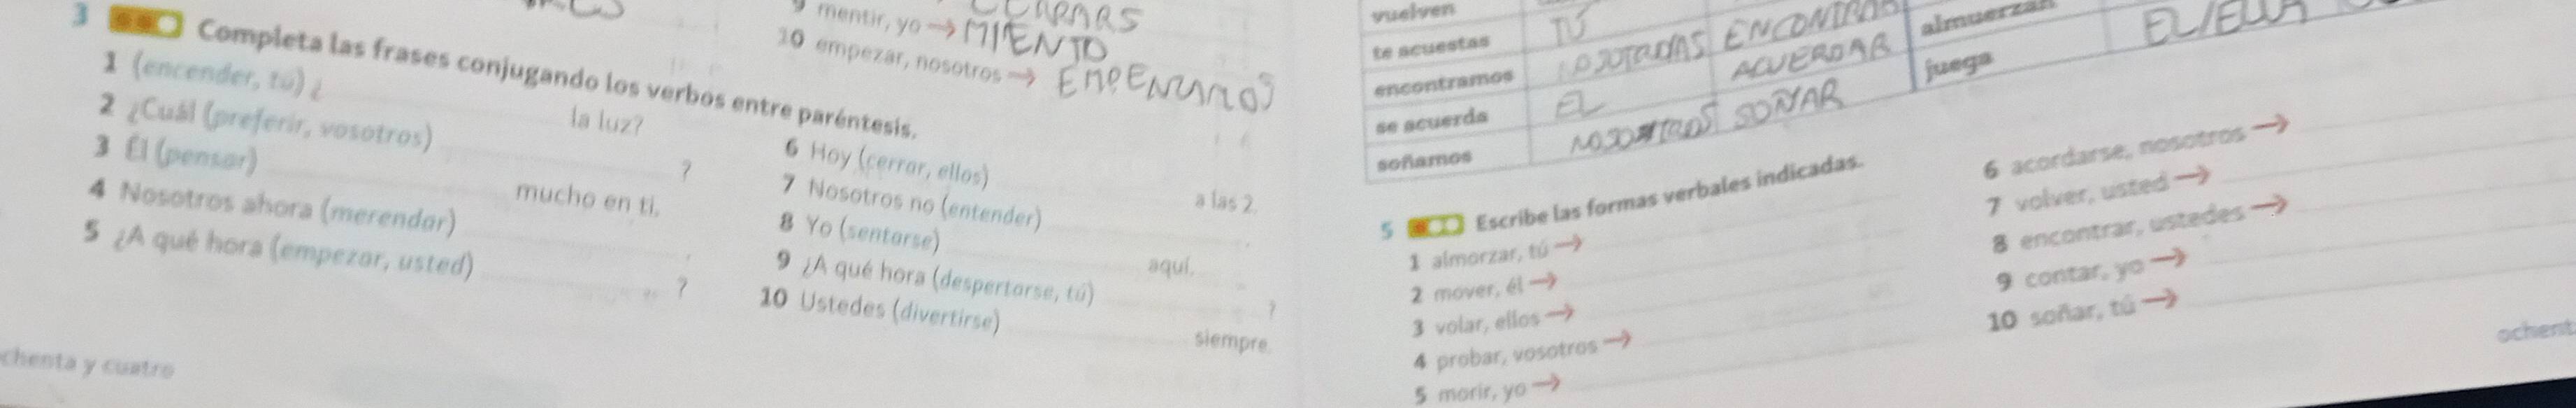 CERRARS
9 mentir, yo → MIENTO
10 empezar, nosotros →
3 Completa las frases conjugando los verbos entre paréntesis.
1 (encender, tú) ¿ la luz?
2 ¿Cuál (preferir, vosotros) ?
3 Él (pensar) mucho en ti.
4 Nosotros ahora (merendar) .
5 ¿A qué hora (empezar, usted) ?
6 Hoy (cerrar, ellos) a las 2.
7 Nosotros no (entender) .
8 Yo (sentarse) aquí.
9 ¿A qué hora (despertarse, tú) ?
10 Ustedes (divertirse) siempre.
chenta y cuatro
vuelven
te acuestas TÚ
encontramos ENCONTRAR
se acuerda EL ACUERDAR
soñamos NOSOTROS SOÑAR
almuerzan
juega EL/ELLA
5 Escribe las formas verbales indicadas.
1 almorzar, tú →
2 mover, él →
3 volar, ellos →
4 probar, vosotros →
5 morir, yo →
6 acordarse, nosotros →
7 volver, usted →
8 encontrar, ustedes →
9 contar, yo →
10 soñar, tú →
ochent